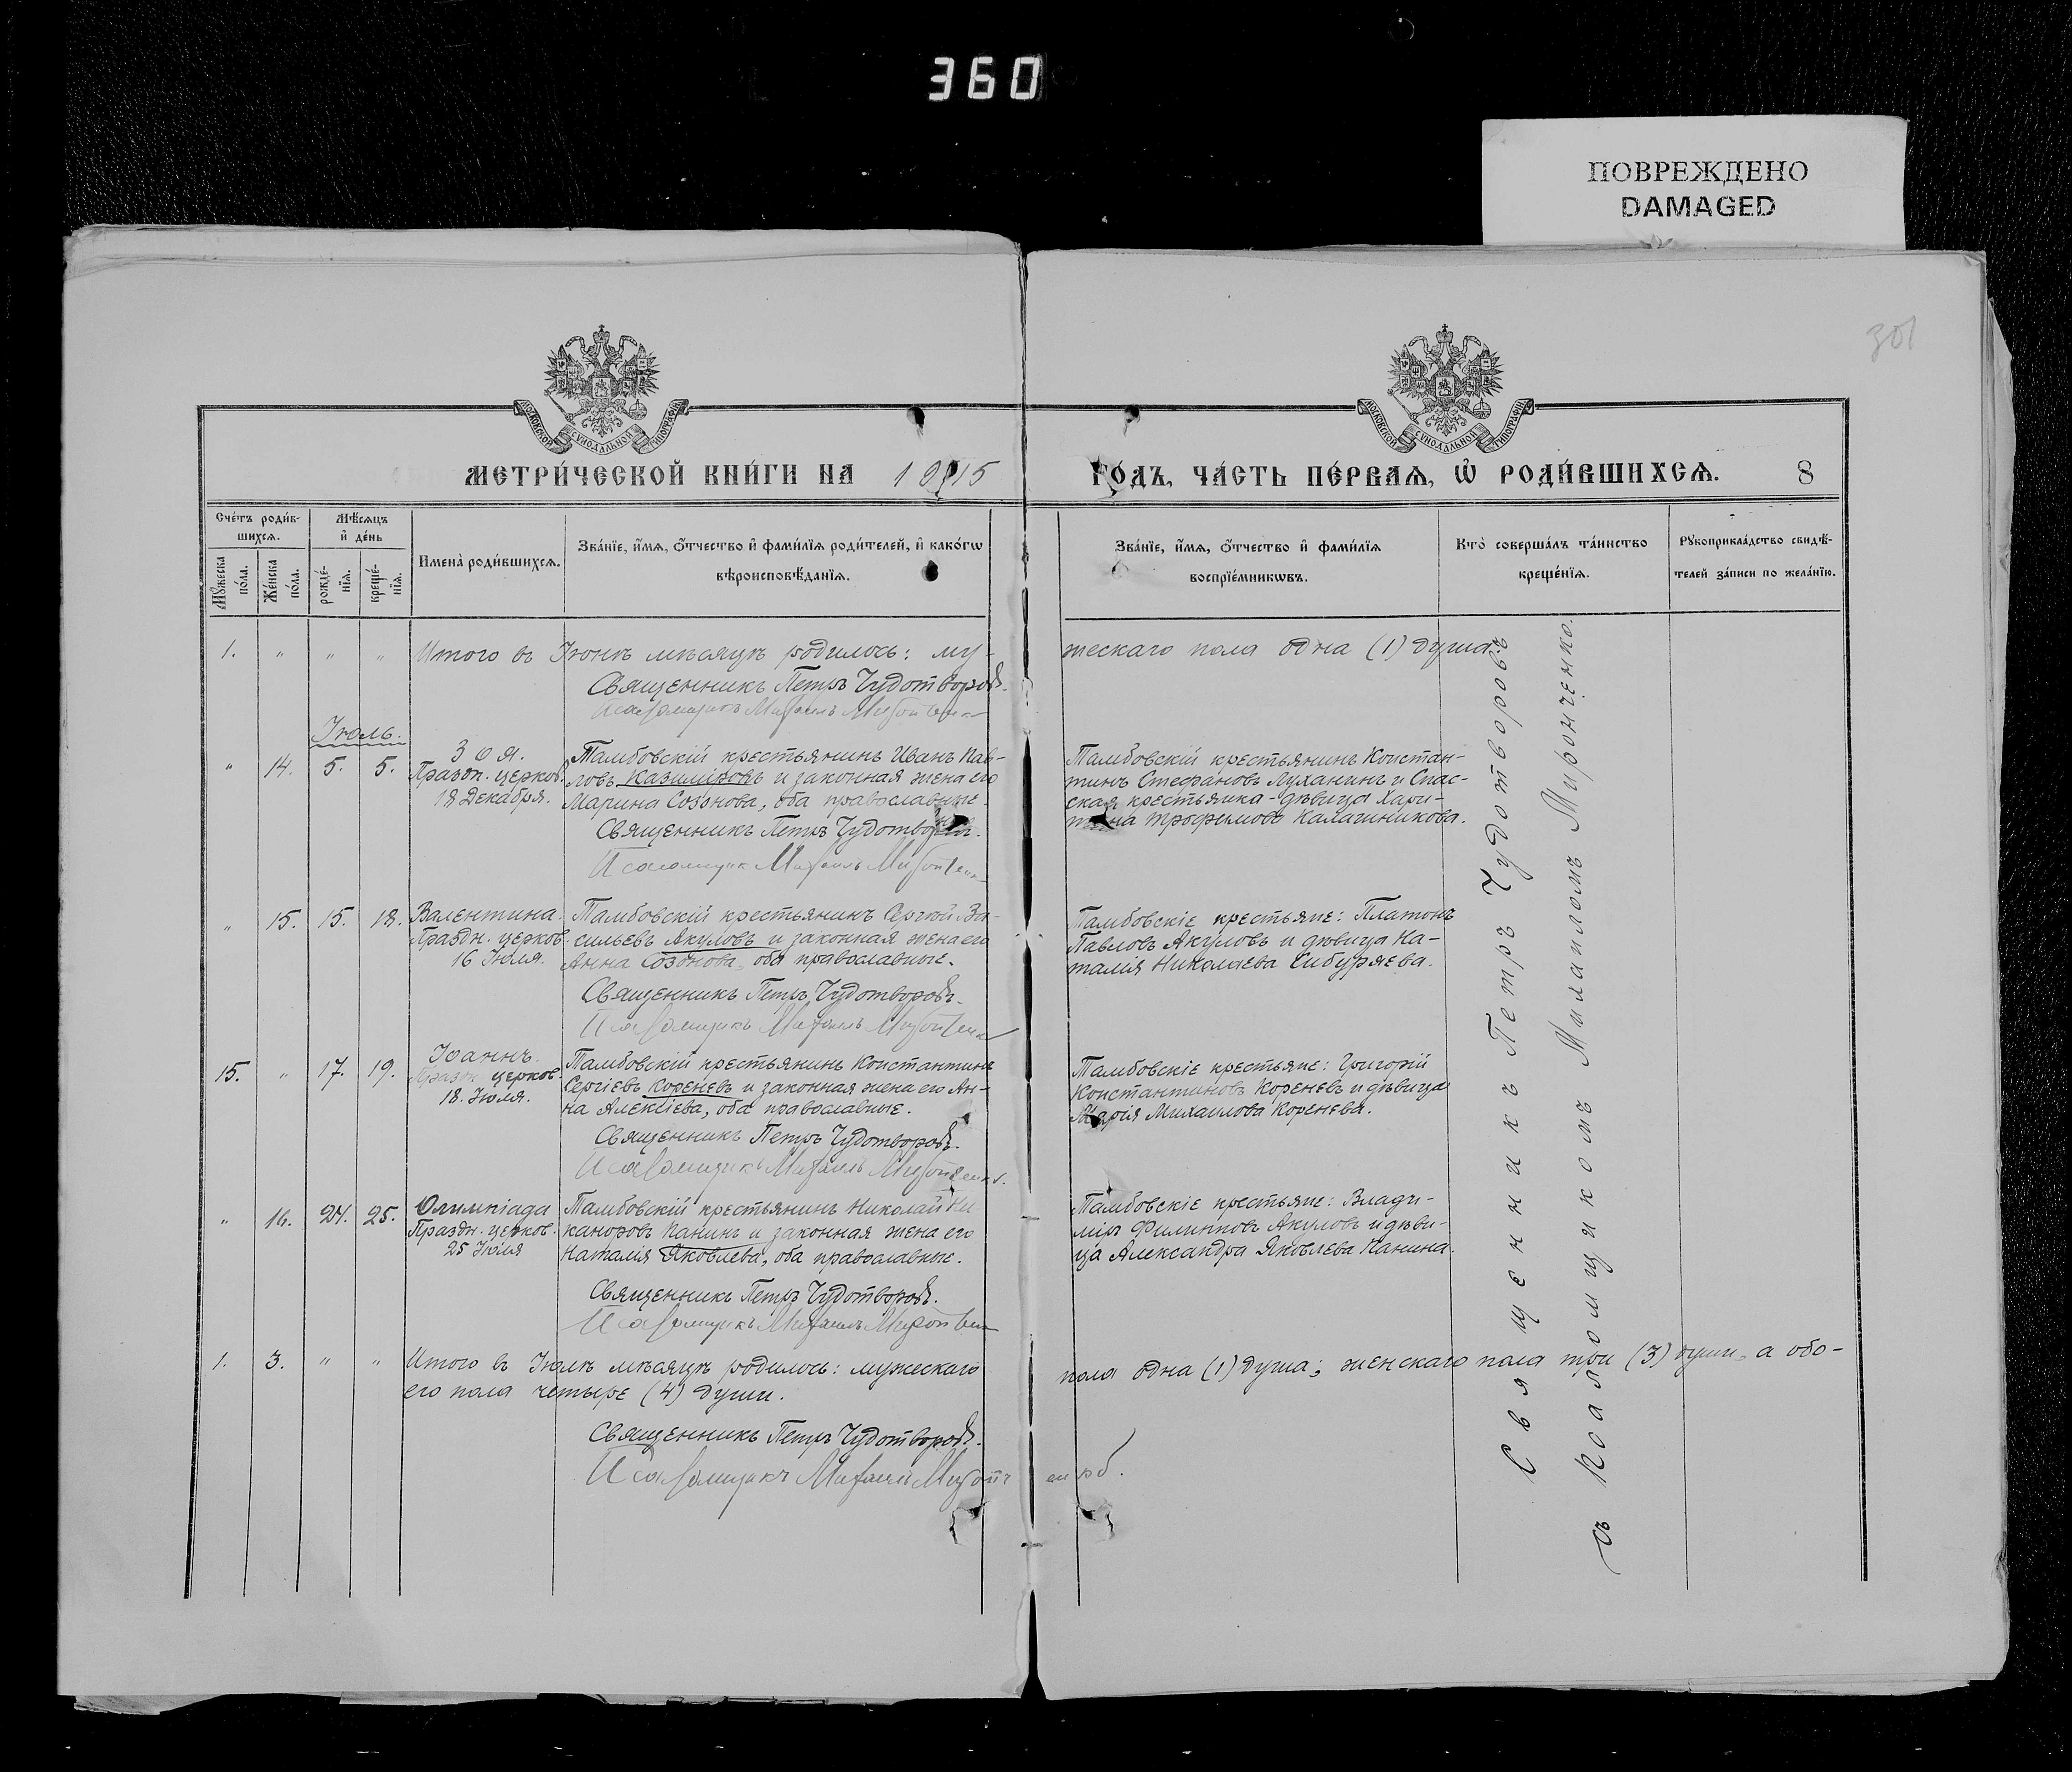 360
ПОВРЕЖДЕНО
DAMAGED
301
МОСКОВСКОЙ СѴНОДАЛЬНОЙ ТИПОГРАФІИ
МОСКОВСКОЙ СѴНОДАЛЬНОЙ ТИПОГРАФІИ
МЕТРИ́ЧЕСКОЙ КНИ́ГИ НА 1915 ГО́ДЪ, ЧА́СТЬ ПЕ́РВАѦ, Ѡ РОДИ́ВШИХСѦ. 8
Счє́тъ роди́в-
шихсѧ.
Мꙋ́жеска по́ла.
Же́нска по́ла.
Мѣ́сѧцъ
и҆ де́нь
рожде́-
нїѧ.
креще́-
нїѧ.
И҆мена̀ роди́вшихсѧ.
Зва́нїе, и҆́мѧ, ѻ҆́тчество и҆ фами́лїѧ роди́телей, и҆ како́гѡ
вѣроисповѣ́данїѧ.
Зва́нїе, и҆́мѧ, ѻ҆́тчество и҆ фами́лїѧ
воспрїе́мникѡвъ.
Кто̀ соверша́лъ та́инство
креще́нїѧ.
Рꙋкоприкла́дство свидѣ́-
телей за́писи по жела́нїю.
1. " " " Итого въ Іюнѣ мѣсяцѣ родилось: му-
жескаго пола одна (1) душа.
Священникъ Петръ Чудотворовъ.
Псаломщикъ Михаилъ
Іюль.
" 14. 5. 5. Зоя.
Праздн. церков.
18 Декабря.
Тамбовскій крестьянинъ Иванъ Пав-
ловъ Казимировъ и законная жена его
Марина Созонова, оба православные.
Священникъ Петръ Чудотворовъ.
Псаломщикъ Михаилъ
Тамбовскій крестьянинъ Констан-
тинъ Стефановъ Луханинъ и Спас-
ская крестьянка - дѣвица Хари-
тина Трофимова Калашникова.
" 15. 15. 18. Валентина.
Праздн. церков.
16 Іюля.
Тамбовскій крестьянинъ Сергѣй Ва-
сильевъ Акуловъ и законная жена его
Анна Созонова, оба православные.
Священникъ Петръ Чудотворовъ.
Псаломщикъ Михаилъ
Тамбовскіе крестьяне: Платонъ
Павловъ Акуловъ и дѣвица На-
талія Николаева Сибуряева.
15. " 17. 19. Іоаннъ.
Праздн. церков.
18. Іюля.
Тамбовскій крестьянинъ Константинъ
Сергіевъ Кореневъ и законная жена его Ан-
на Алексіева, оба православные.
Священникъ Петръ Чудотворовъ.
Псаломщикъ Михаилъ
Тамбовскіе крестьяне: Григорій
Константиновъ Кореневъ и дѣвица
Марія Михаилова Коренева.
" 16. 24. 25. Олимпіада
Праздн. церков.
25 Іюля
Тамбовскій крестьянинъ Николай Ни
каноровъ Панинъ и законная жена его
Наталія Яковлева, оба православные.
Священникъ Петръ Чудотворовъ.
Псаломщикъ Михаилъ
Тамбовскіе крестьяне: Влади-
міръ Филипповъ Акуловъ и дѣви-
ца Александра Яковлева Панина.
1. 3. " " Итого въ Іюлѣ мѣсяцѣ родилось: мужескаго
пола одна (1) душа; женскаго пола три (3) души, а обо-
его пола четыре (4) души.
Священникъ Петръ Чудотворовъ.
Псаломщикъ Михаилъ
Священникъ Петръ Чудотворовъ
съ псаломщикомъ Михаиломъ Миронченко.